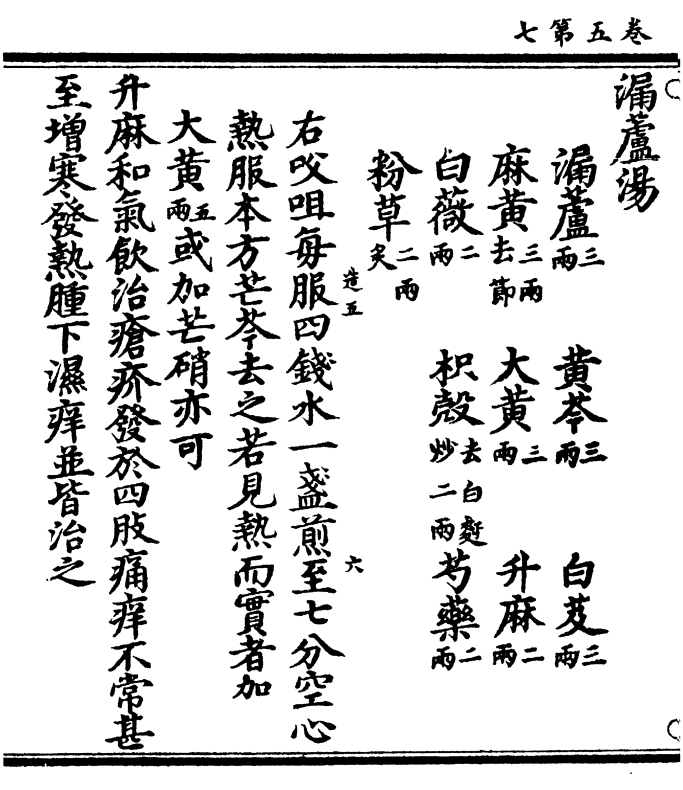 卷五第七
漏蘆湯
漏蘆三兩 黄芩三兩 白芨三兩
麻黄三兩去節 大黄三兩 升麻二兩
白薇二兩 枳殼去白麩炒二兩 芍藥二兩
粉草二兩炙
造五 六
右㕮咀每服四錢水一盞煎至七分空心
熱服本方芒芩去之若見熱而實者加
大黄五兩或加芒硝亦可
升麻和氣飲治瘡疥發於四肢痛痒不常甚
至增寒發熱腫下濕痒並皆治之